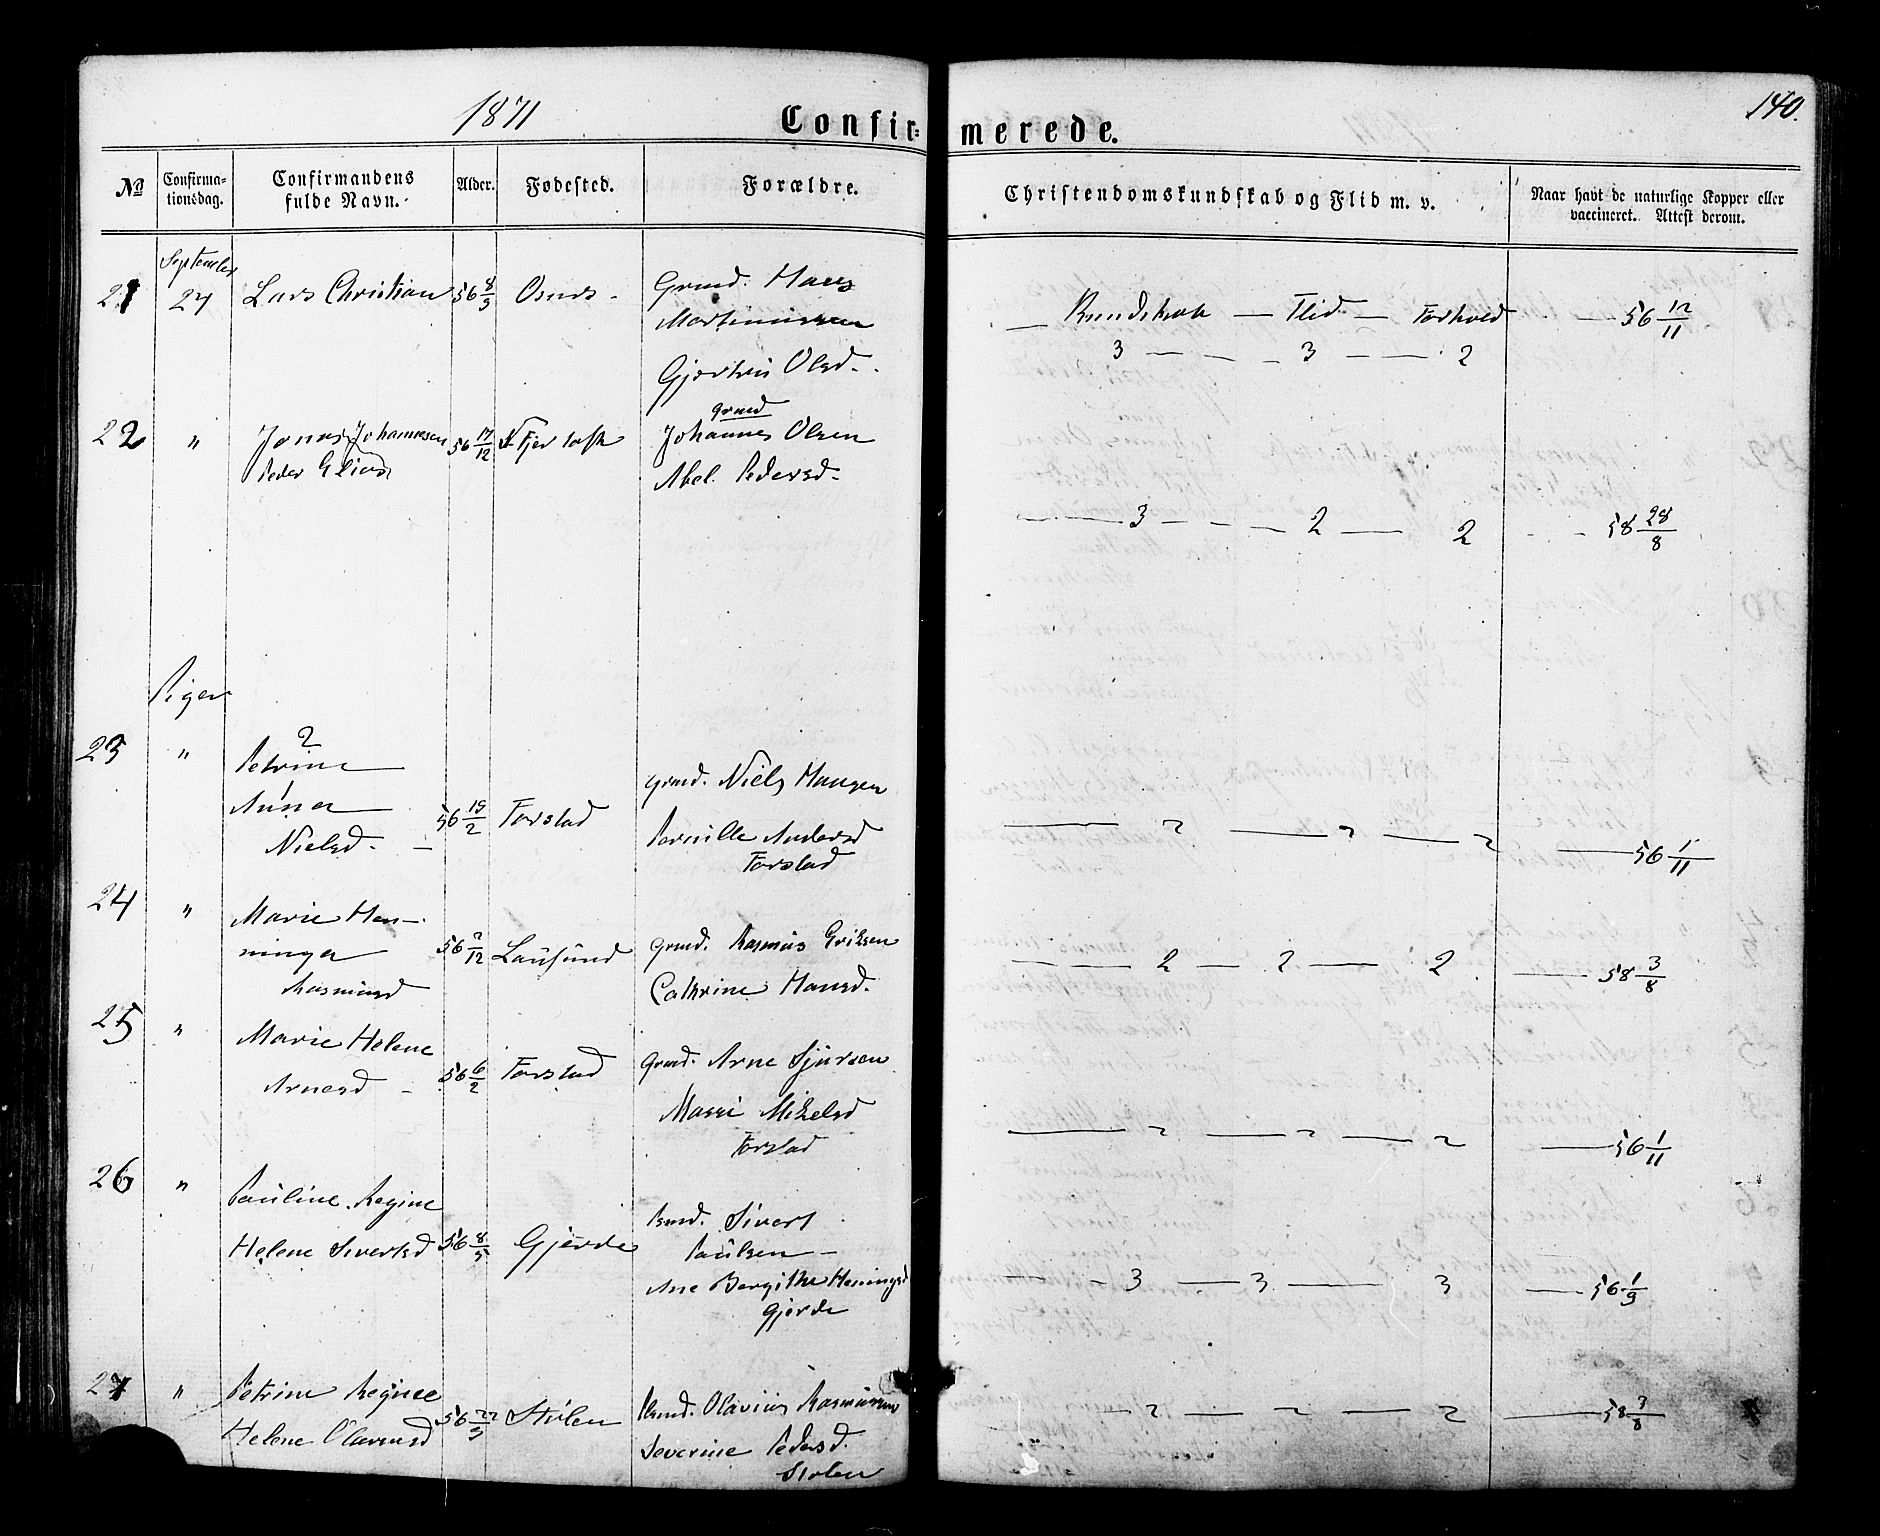 1871
Confirmerede.
140.
No
Confirmationsdag.
Confirmandens fulde Navn.
Alder.
Fødested.
Forældre.
Christendomskundskab og Flid m. v.
Naar havt de naturlige Kopper eller vaccineret. Attest derom.
September
21 24 Lars Christian 56 8/9
Grmd. Hans
Martinussen
Olsd.
Kundskab — Flid — Forhold — 56 12/11
3 — 3 — 2
22 " Jonas Johannesen 56 17/12 Fjertoft
Peder Elias
Grmd
Johannes Olsen
Abel Pedersd.
3 — 2 — 2 — 58 28/8
Piger
23 " 2
Petrine
1
Anna
Nielsd. — 56 19/2 Forstad
Grmd. Niels Hansen
Pernille Andersd
Forstad
2 — 2 — 2 — 56 1/11
24 " Marie Hen-
ninga
Rasmusd 56 2/12 Lausund
Grmd. Rasmus Eriksen
Cathrine Hansd.
2 — 2 — 2 — 58 3/8
25 " Marie Helene
Arnesd - 56 6/2 Forstad
Grmd. Arne Sjursen
Marri Mikelsd
Forstad
2 — 2 — 2 — 56 1/11
26 " Pauline Regine
Helene Sivertsd 56 8/5 Gjerde
Sivert
Paulsen —
Ane Bergithe Heningsd
Gjerde
3 — 3 — 3 — 56 1/9
27 " Petrine Regine
Helene Olavusd 56 22/9 Stølen
Olavius Rasmussen
Severine Pedersd.
Stølen
2 — 2 — 2 — 58 3/8